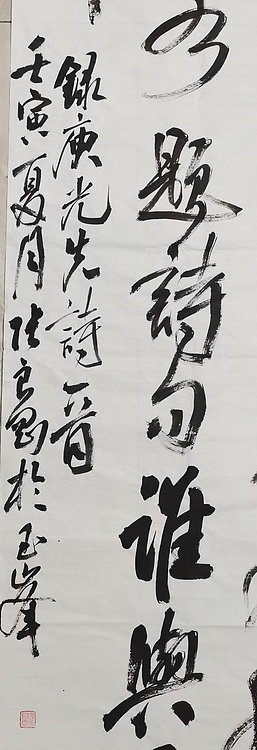 題詩句誰與
錄庚光先詩一首
壬寅夏月張良勛於玉峰